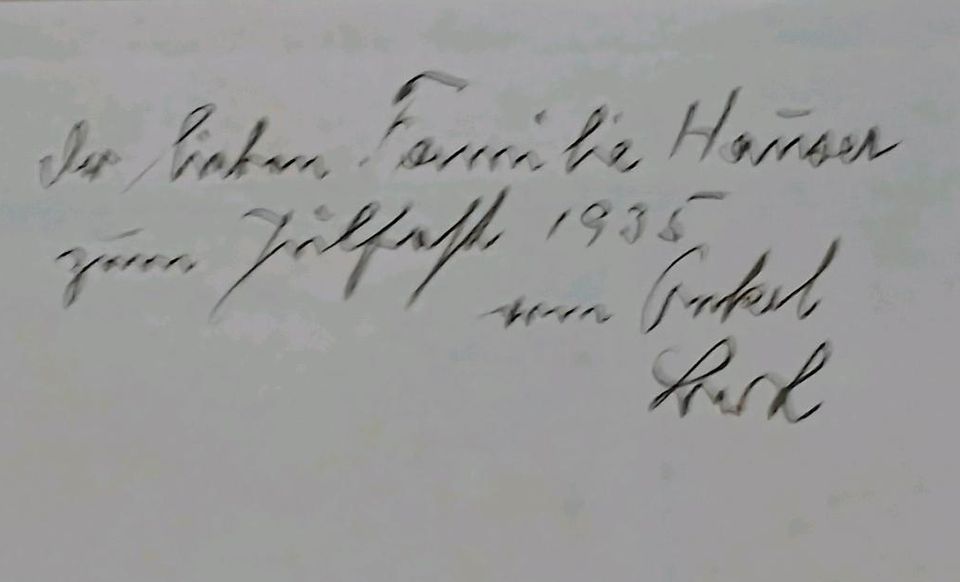 Der lieben Familie Hauser
zum Julfest 1935
von Onkel